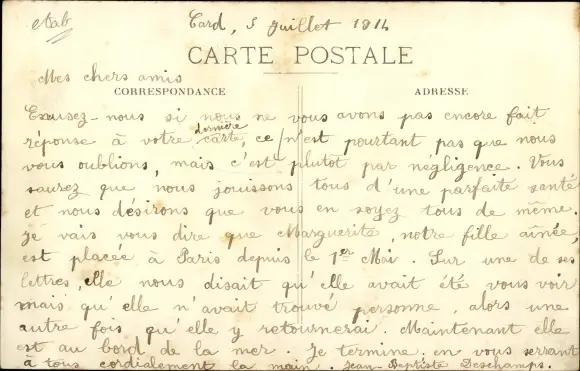 Card, 5 Juillet 1914
CARTE POSTALE
Mes chers amis
CORRESPONDANCE
ADRESSE
Excusez-nous si nous ne vous avons pas encore fait
réponse à votre dernière carte, ce n'est pourtant pas que nous
vous oublions, mais c'est plutot par négligence. Vous
saurez que nous jouissons tous d'une parfaite santé
et nous désirons que vous en soyez tous de même.
Je vais vous dire que Marguerite, notre fille ainée,
est placée à Paris depuis le 1er Mai. Sur une de ses
lettres, elle nous disait qu'elle avait été vous voir
mais qu'elle n'avait trouvé personne, alors une
autre fois qu'elle y retournerai. Maintenant elle
est au bord de la mer. Je termine en vous serrant
à tous cordialement la main. Jean-Baptiste Deschamps.